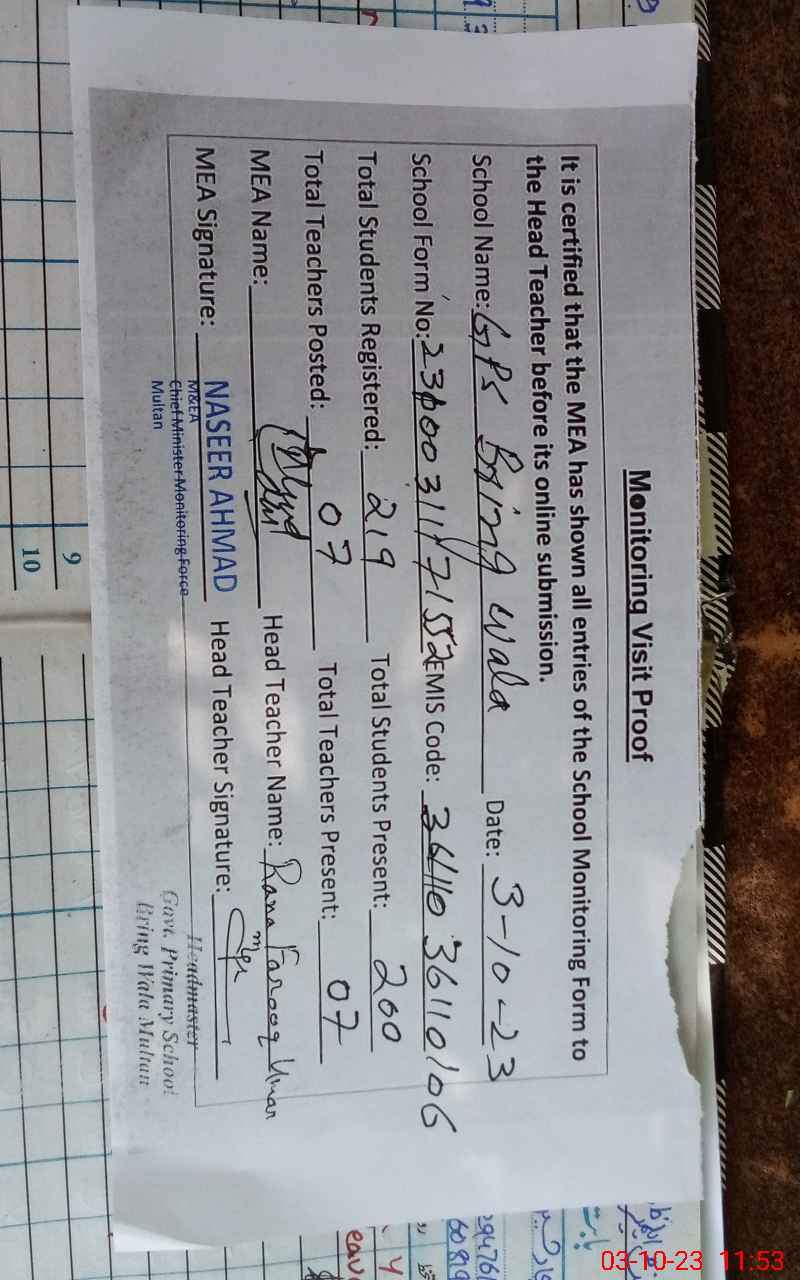 Monitoring Visit Proof
It is certified that the MEA has shown all entries of the School Monitoring Form to
the Head Teacher before its online submission.
School Name: GPS Bring Wala Date: 3-10-23
School Form No: EMIS Code: 36110106
Total Students Registered: 219 Total Students Present: 200
Total Teachers Posted: 07 Total Teachers Present: 07
MEA Name: Head Teacher Name: Rana Farooq Umar
MEA Signature: Head Teacher Signature:
NASEER AHMAD
M&EA
Chief Minister Monitoring Force
Multan
Headmaster
Govt. Primary School
Bring Wala Multan
9
10
03-10-23 11:53